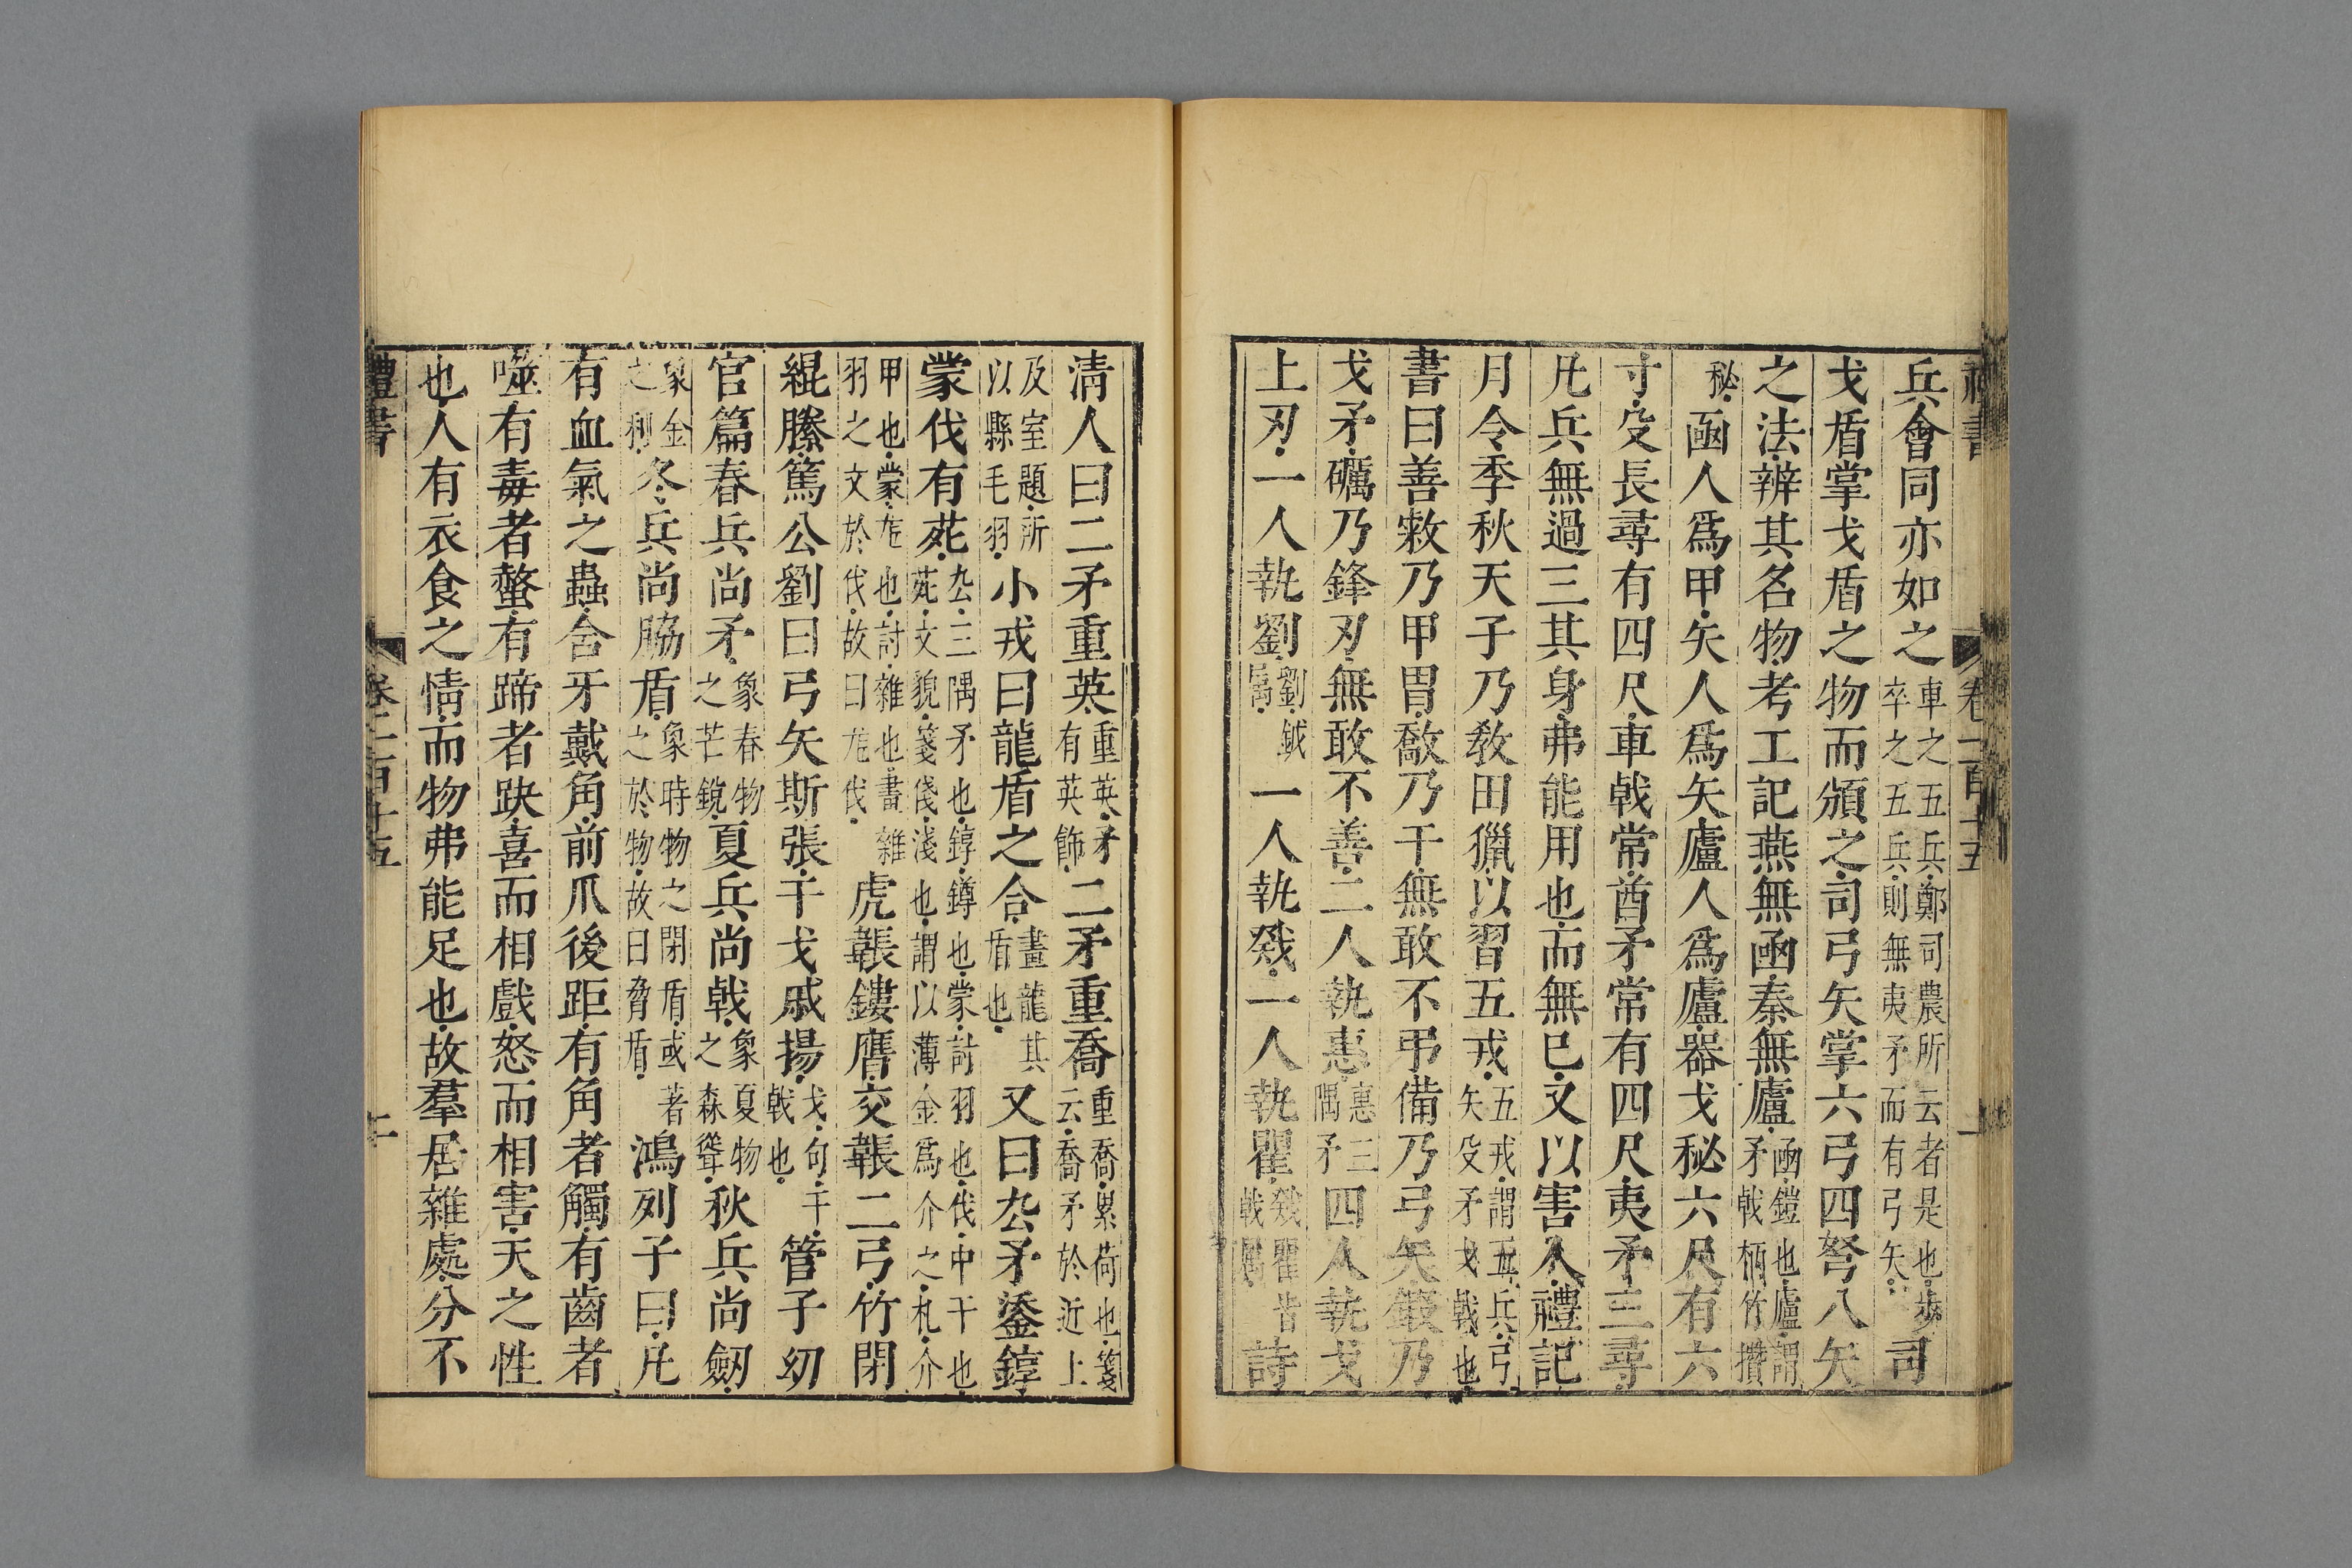 兵會同亦如之車之五兵鄭司農所云者是也步卒之五兵則無夷矛而有弓矢司
戈盾掌戈盾之物而頒之司弓矢掌六弓四弩八矢
之法辨其名物考工記燕無函秦無廬函鎧也廬謂矛戟柄竹攢
秘函人爲甲矢人爲矢廬人爲廬器戈秘六尺有六
寸殳長尋有四尺車戟常酋矛常有四尺夷矛三尋
凡兵無過三其身弗能用也而無已又以害人禮記
月令季秋天子乃敎田獵以習五戎五戎謂五兵弓矢殳矛戈戟也
書曰善敹乃甲冑敿乃干無敢不弔備乃弓矢鍛乃
戈矛礪乃鋒刃無敢不善二人執惠惠三隅矛四人執戈
上刃一人執劉劉鉞屬一人執戣一人執瞿戣瞿皆戟屬詩
清人曰二矛重英重英矛有英飾二矛重喬重喬累荷也箋云喬矛於近上
及室題所以縣毛羽小戎曰龍盾之合畫龍其盾也又曰厹矛鋈錞
蒙伐有苑厹三隅矛也錞鐏也蒙討羽也伐中干也苑文貌箋俴淺也謂以薄金爲介之札介
甲也蒙厖也討雜也畫雜羽之文於伐故曰厖伐虎韔鏤膺交韔二弓竹閉
緄縢篤公劉曰弓矢斯張干戈戚揚戈句干戟也管子幼
官篇春兵尚矛象春物之芒鋭夏兵尚戟象夏物之森聳秋兵尚劒
象金之利冬兵尚脇盾象時物之閉盾或著之於物故曰脅盾鴻列子曰凡
有血氣之蟲含牙戴角前爪後距有角者觸有齒者
噬有毒者螫有蹄者趹喜而相戲怒而相害天之性
也人有衣食之情而物弗能足也故羣居雜處分不
禮書 卷一百十五